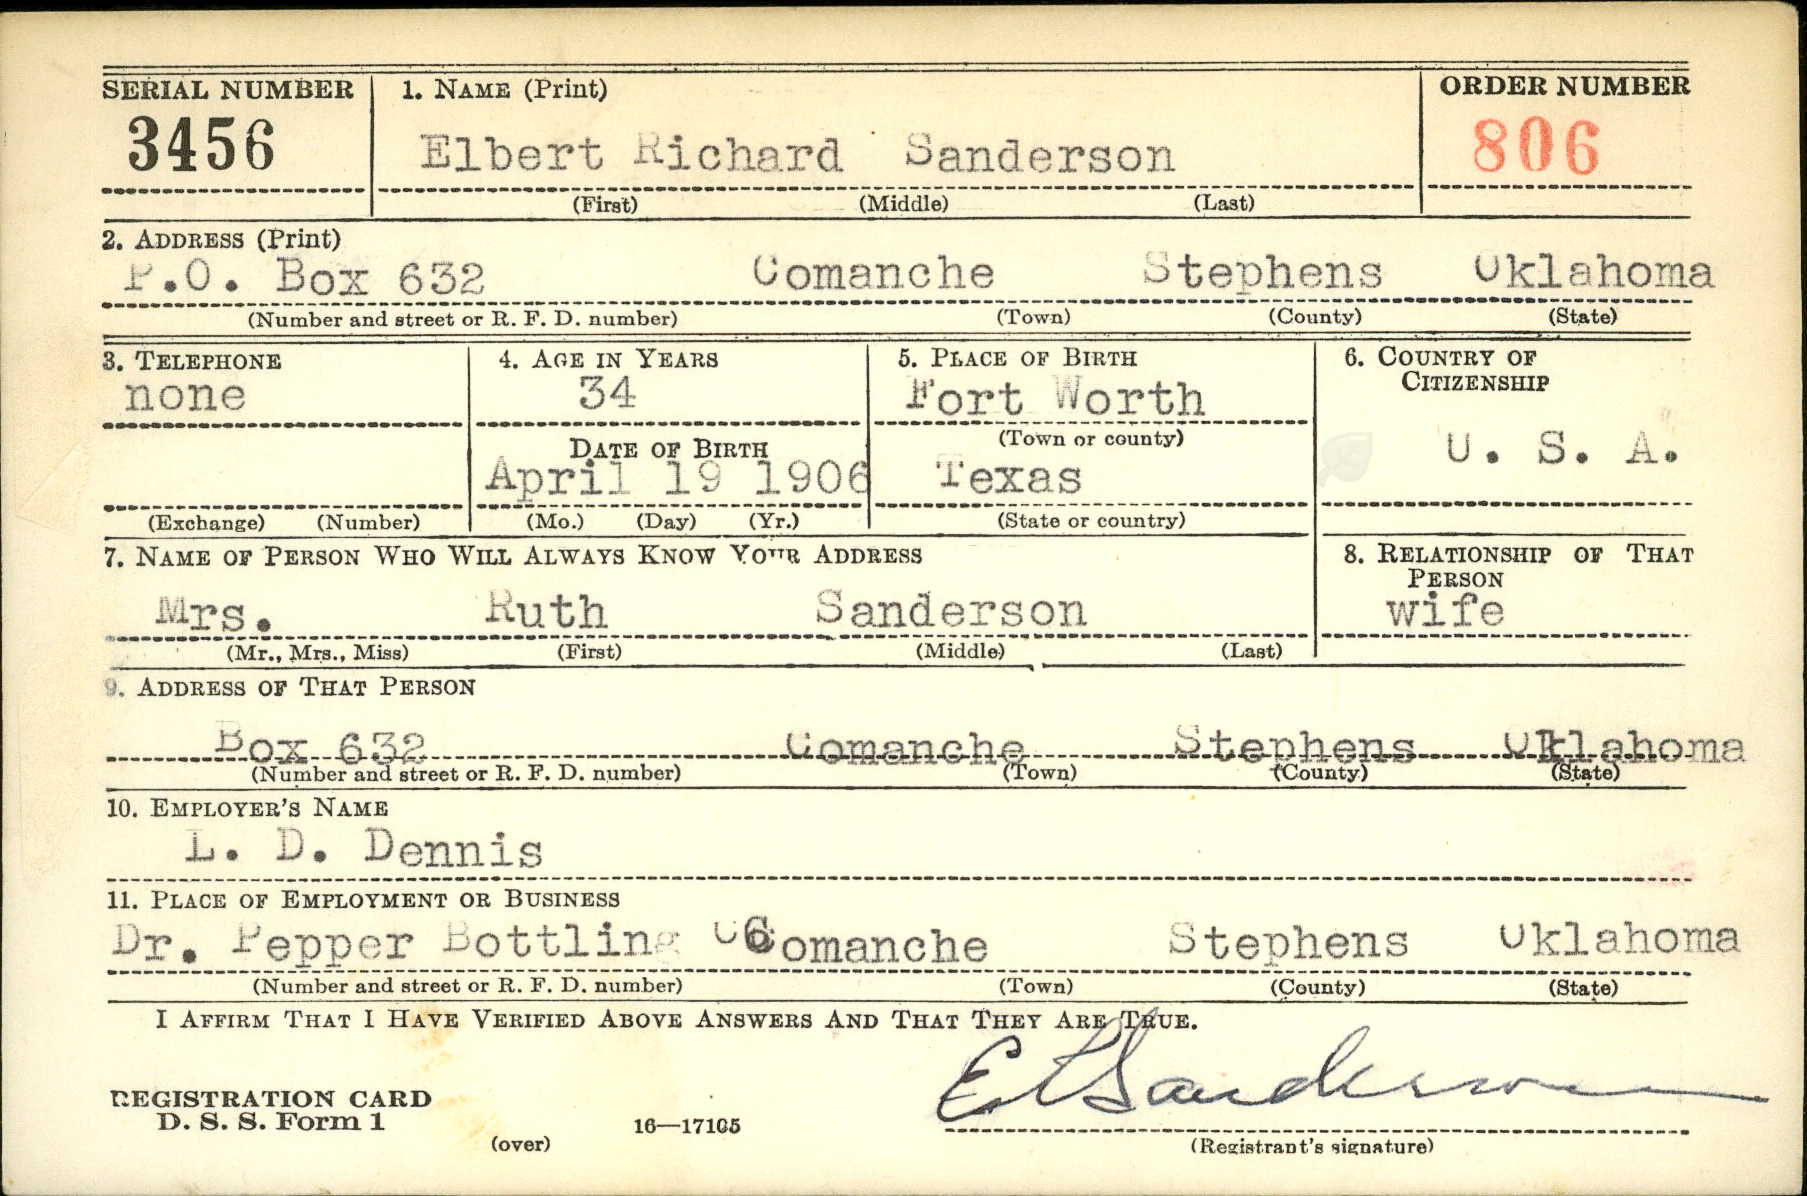 SERIAL NUMBER 1. NAME (Print) ORDER NUMBER
3456 Elbert Richard Sanderson 806
(First) (Middle) (Last)
2. ADDRESS (Print)
P.O. Box 632 Comanche Stephens Oklahoma
(Number and street or R. F. D. number) (Town) (County) (State)
3. TELEPHONE 4. AGE IN YEARS 5. PLACE OF BIRTH 6. COUNTRY OF
CITIZENSHIP
none 34 Fort Worth
(Town or county)
DATE OF BIRTH U. S. A.
April 19 1906 Texas
(Exchange) (Number) (Mo.) (Day) (Yr.) (State or country)
7. NAME OF PERSON WHO WILL ALWAYS KNOW YOUR ADDRESS 8. RELATIONSHIP OF THAT
PERSON
Mrs. Ruth Sanderson wife
(Mr., Mrs., Miss) (First) (Middle) (Last)
9. ADDRESS OF THAT PERSON
Box 632 Comanche Stephens Oklahoma
(Number and street or R. F. D. number) (Town) (County) (State)
10. EMPLOYER'S NAME
L. D. Dennis
11. PLACE OF EMPLOYMENT OR BUSINESS
Dr. Pepper Bottling Co Comanche Stephens Oklahoma
(Number and street or R. F. D. number) (Town) (County) (State)
I AFFIRM THAT I HAVE VERIFIED ABOVE ANSWERS AND THAT THEY ARE TRUE.
E R Sanderson
REGISTRATION CARD
D. S. S. Form 1
(over) 16—17105
(Registrant's signature)